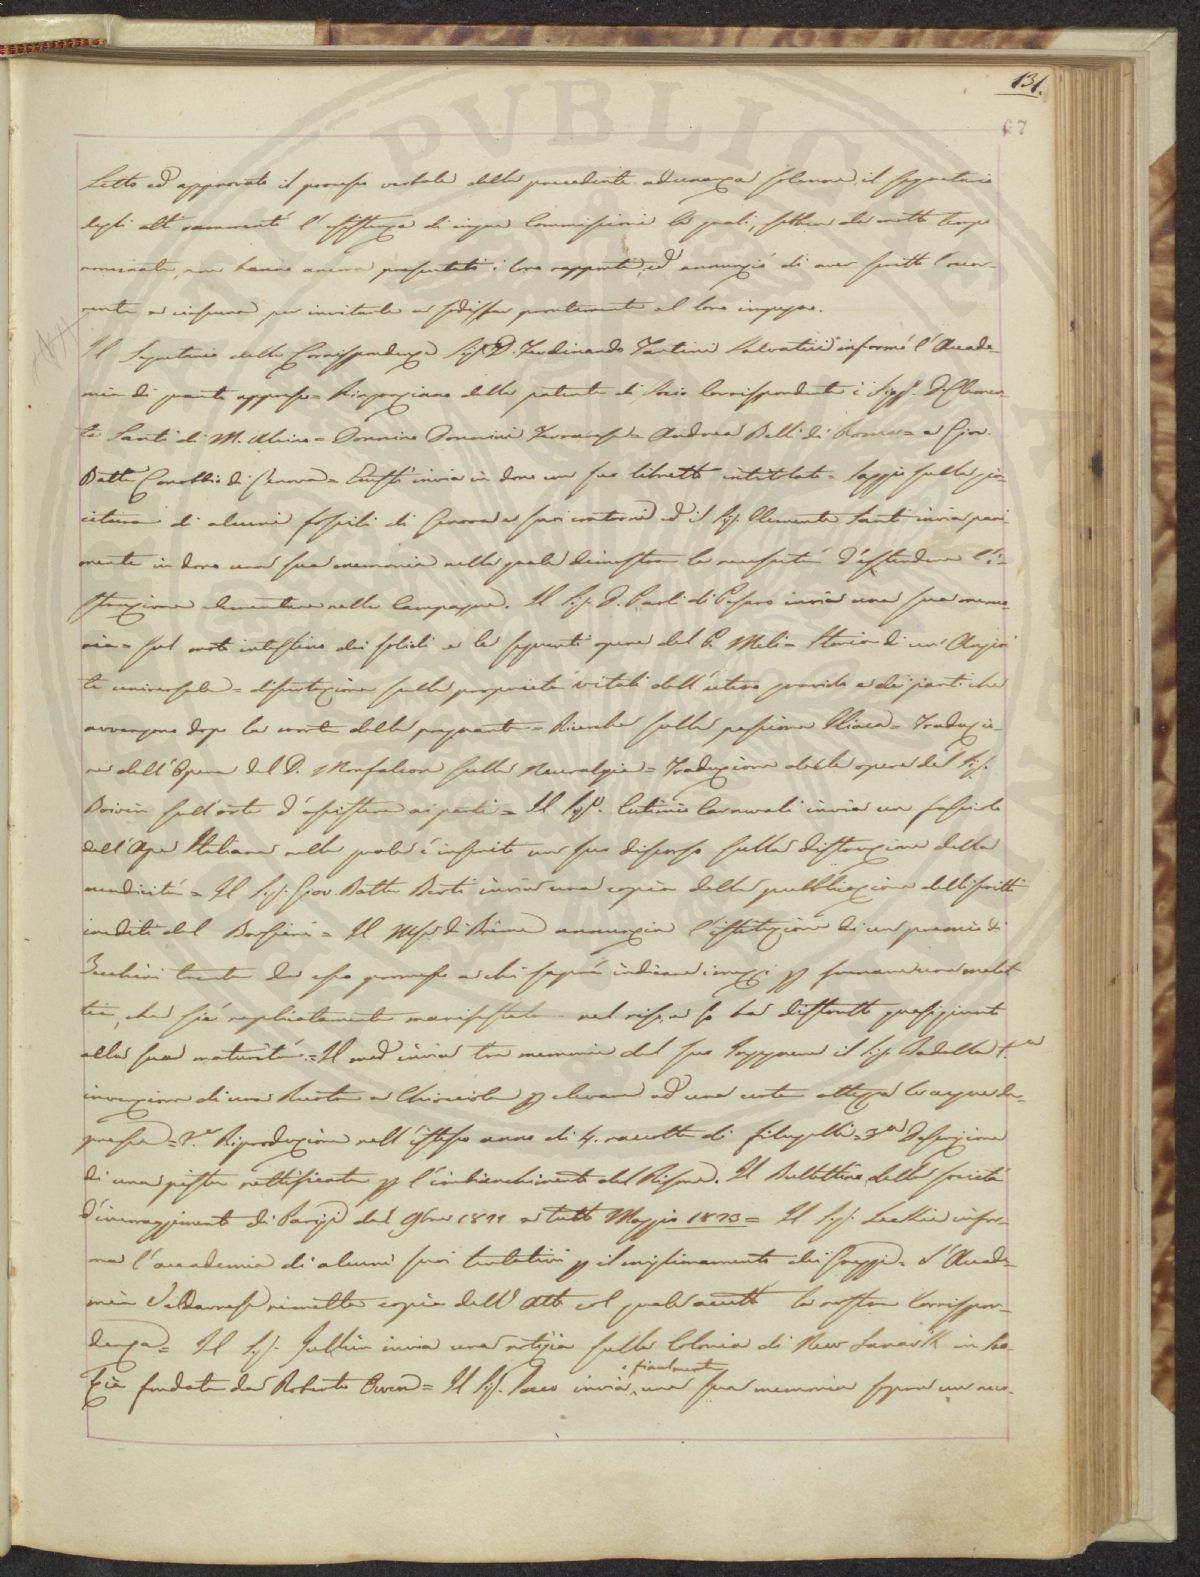 131.
67
Letto ed approvato il processo verbale della precedente adunanza solenne, il Segretario
degli atti rammentò l'esistenza di cinque Commissioni le quali, sebben da molto tempo
nominate, non hanno ancora presentati i loro rapporti, ed annunziò di aver scritto l'occor-
rente a ciascuna per invitarle a sodisfar prontamente al loro impegno.
Il Segretario della Corrispondenza Sig. D. Ferdinando Tartini Salvatici informò l'Accade-
mia di quanto appresso = Ringraziano della patente di Socio Corrispondente i Sigg. Clemen-
te Santi di M. Alcino = Domenico Bernini Ferrarese = Andrea Belli di Roma = e Giov.
Batta Canobbio di Genova = Questi invia in dono un suo libretto intitolato = Saggio sulla gia-
citura di alcuni fossili di Genova e suoi contorni ed il Sig. Clemente Santi invia pari-
mente in dono una sua memoria nella quale dimostra la necessità d'estendere l'i-
struzione elementare nelle Campagne. Il Sig. D. Paoli di Pesaro invia una sua memo-
ria = sul moto intestino dei solidi e le seguenti opere del D. Meli = Storia di un' Angioi
te universale = dissertazione sulle proprietà vitali dell'utero gravido e dei parti che
avvengono dopo la morte della pregnante = Ricerche sulla passione Iliaca = Traduzio-
ne dell'Opera del D. Monfalcon sulle Nevralgie = Traduzione delle opere del Sig.
Boivin sull'arte d'assistere ai parti = Il Sig. Eutimio Carnevali invia un fascicolo
dell'Ape Italiana nella quale è inserito un suo discorso sulla distruzione della
mendicità = Il Sig. Giov. Batta Berti invia una copia della pubblicazione delli scritti
inediti del Barbieri = Il Mse di Breme annunzia l'istituzione di un premio di
Zecchini trenta da esso promesso a chi saprà indicare i mezzi p fermare una malat
tia, che si è replicatamente manifestata nel riso, e lo ha distrutto quasi giunto
alla sua maturità. = Il med. invia tre memorie del suo Ingegnere il Sig. Badella 1.a
invenzione di una Ruota a Chiocciola p elevare ad una certa altezza le acque de-
presse = 2.a Riproduzione nell'istesso anno di 4. raccolte di filugelli = 3.a Descrizione
di una pista rettificata p l'imbianchimento del Riso. Il Bullettino della società
d'incoraggimento di Parigi dal 9bre 1822 a tutto Maggio 1823 = Il Sig. Leckie infor-
ma l'accademia di alcuni suoi tentativi p il miglioramento dei = L'Accade-
mia Valdarnese rimette copia dell'Atto col quale accettò la nostra Corrispon-
denza = Il Sig. Jullien invia una notizia sulla Colonia di New Lanark in Sco-
zia fondata da Roberto Owen = Il Sig. inviò finalmente una sua memoria sopra un nuo-